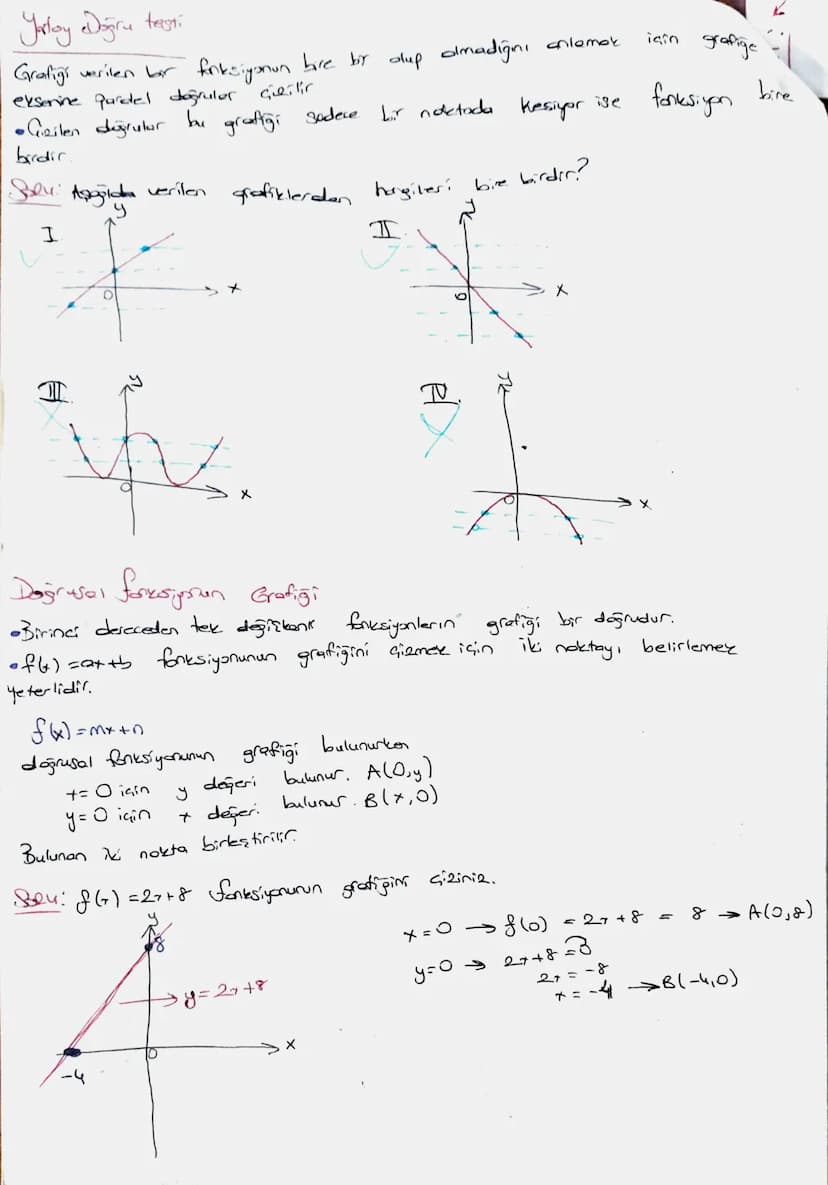 Yatay Doğru testi
Grafiği verilen bir fonksiyonun bire bir olup olmadığını anlamak için grafiğe
eksenine paralel doğrular çizilir
• Çizilen doğrular bu grafiği sadece bir noktada kesiyor ise fonksiyon bire
birdir.
Soru: Aşağıda verilen grafiklerden hangileri bire birdir?
I
y
x
O
II
y
x
O
III
y
x
O
IV.
y
x
O
Doğrusal fonksiyonun Grafiği
• Birinci dereceden tek değişkenli fonksiyonların grafiği bir doğrudur.
• f(x) = ax+b fonksiyonunun grafiğini çizmek için iki noktayı belirlemek
yeterlidir.
f(x) = mx+n
doğrusal fonksiyonunun grafiği bulunurken
x=0 için y değeri bulunur. A(0,y)
y=0 için x değeri bulunur. B(x,0)
Bulunan iki nokta birleştirilir.
Soru: f(x) = 2x+8 fonksiyonunun grafiğini çiziniz.
x=0 → f(0) = 2x+8 = 8 → A(0,8)
y=0 → 2x+8=0
2x = -8
x = -4 → B(-4,0)
y
8
y = 2x+8
x
O
-4